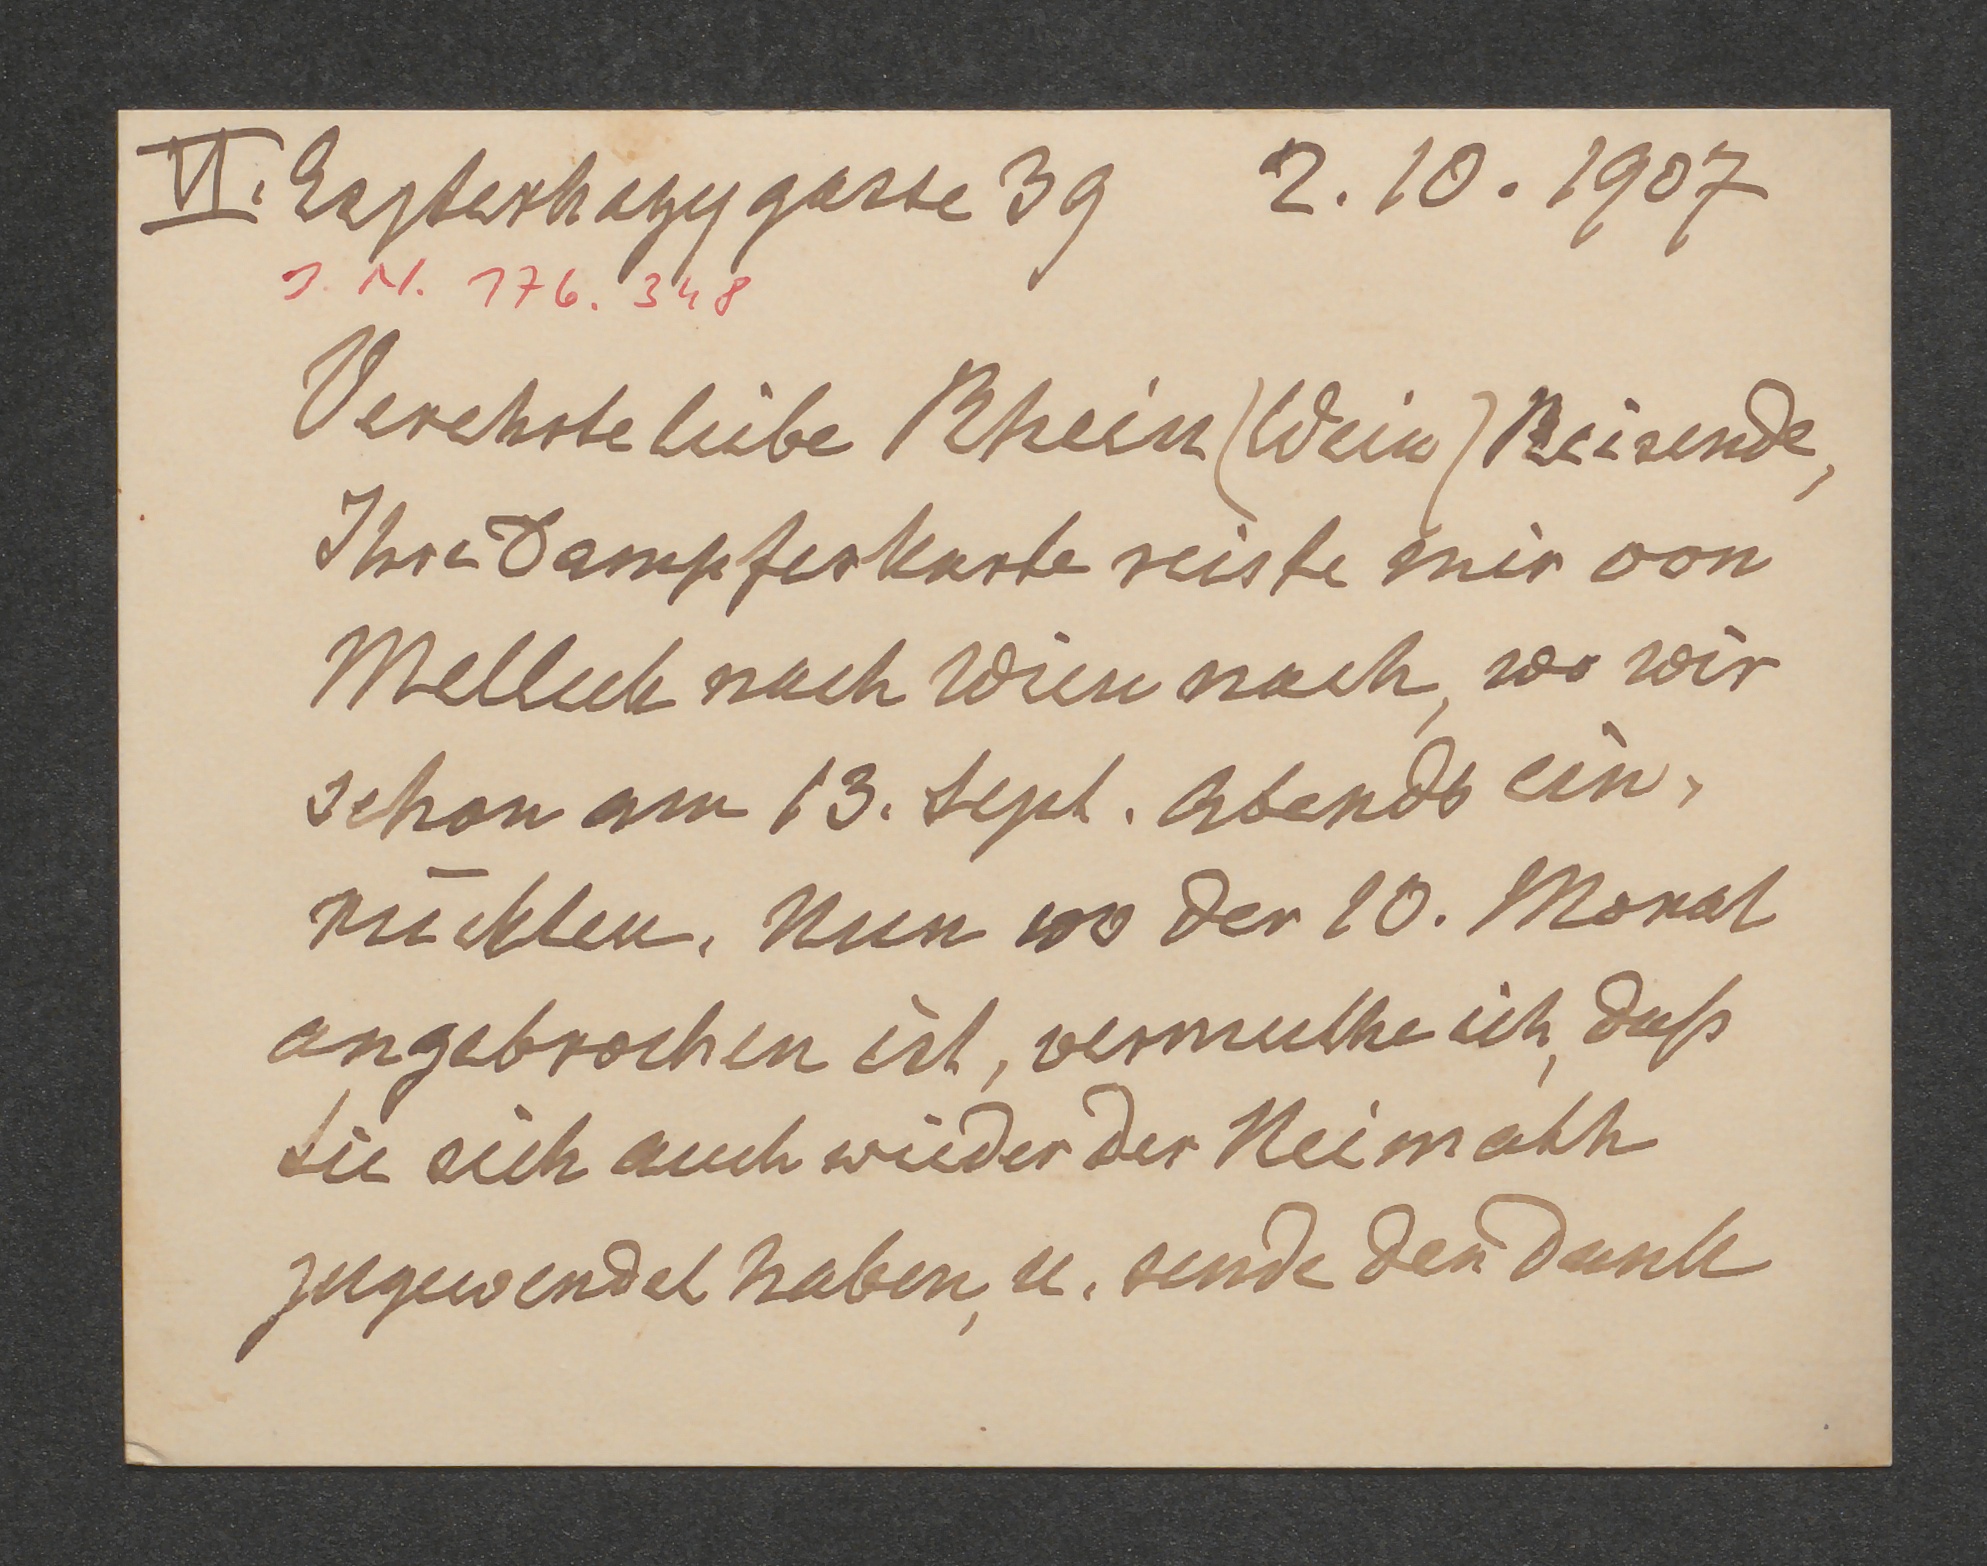 VI. Eszterhazygasse 39 2.10.1907
J. N. 176.348
Verehrte liebe Rhein(Wein)Reisende,
Ihre Dampferkarte reiste mir von
Melleck nach Wien nach, wo wir
schon am 13. Sept. Abends ein-
rückten. Nun wo der 10. Monat
angebrochen ist, vermuthe ich, daß
Sie sich auch wieder der Heimath
zugewendet haben, u. sende den Dank